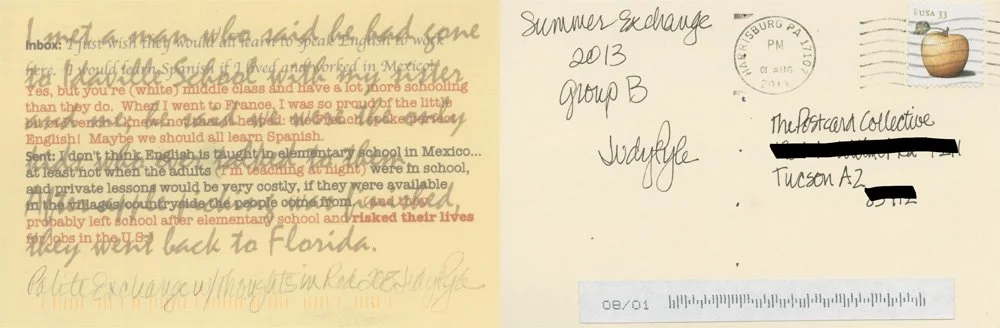 I met a man who said he had gone
to Idaville School with my sister
and me, he said we were the only
kids who ever talked to them.
After apple picking was finished,
they went back to Florida.
Inbox: I just wish they would all learn to speak English to work
here. I would learn Spanish if I lived and worked in Mexico!
Yes, but you're (white) middle class and have a lot more schooling
than they do. When I went to France, I was so proud of the little
bit of French I knew, not that it helped: the French spoke perfect
English! Maybe we should all learn Spanish.
Sent: I don't think English is taught in elementary school in Mexico...
at least not when the adults (I'm teaching at night) were in school,
and private lessons would be very costly, if they were available
in the villages/countryside the people come from, and they
probably left school after elementary school and risked their lives
for jobs in the U.S.
Polite Exchange w/ Thoughts in Red 2013 Judy Pyle
Summer Exchange
2013
Group B
Judy Pyle
HARRISBURG PA 17107
PM
01 AUG
2013
USA 33
The Postcard Collective
Tucson AZ
08/01